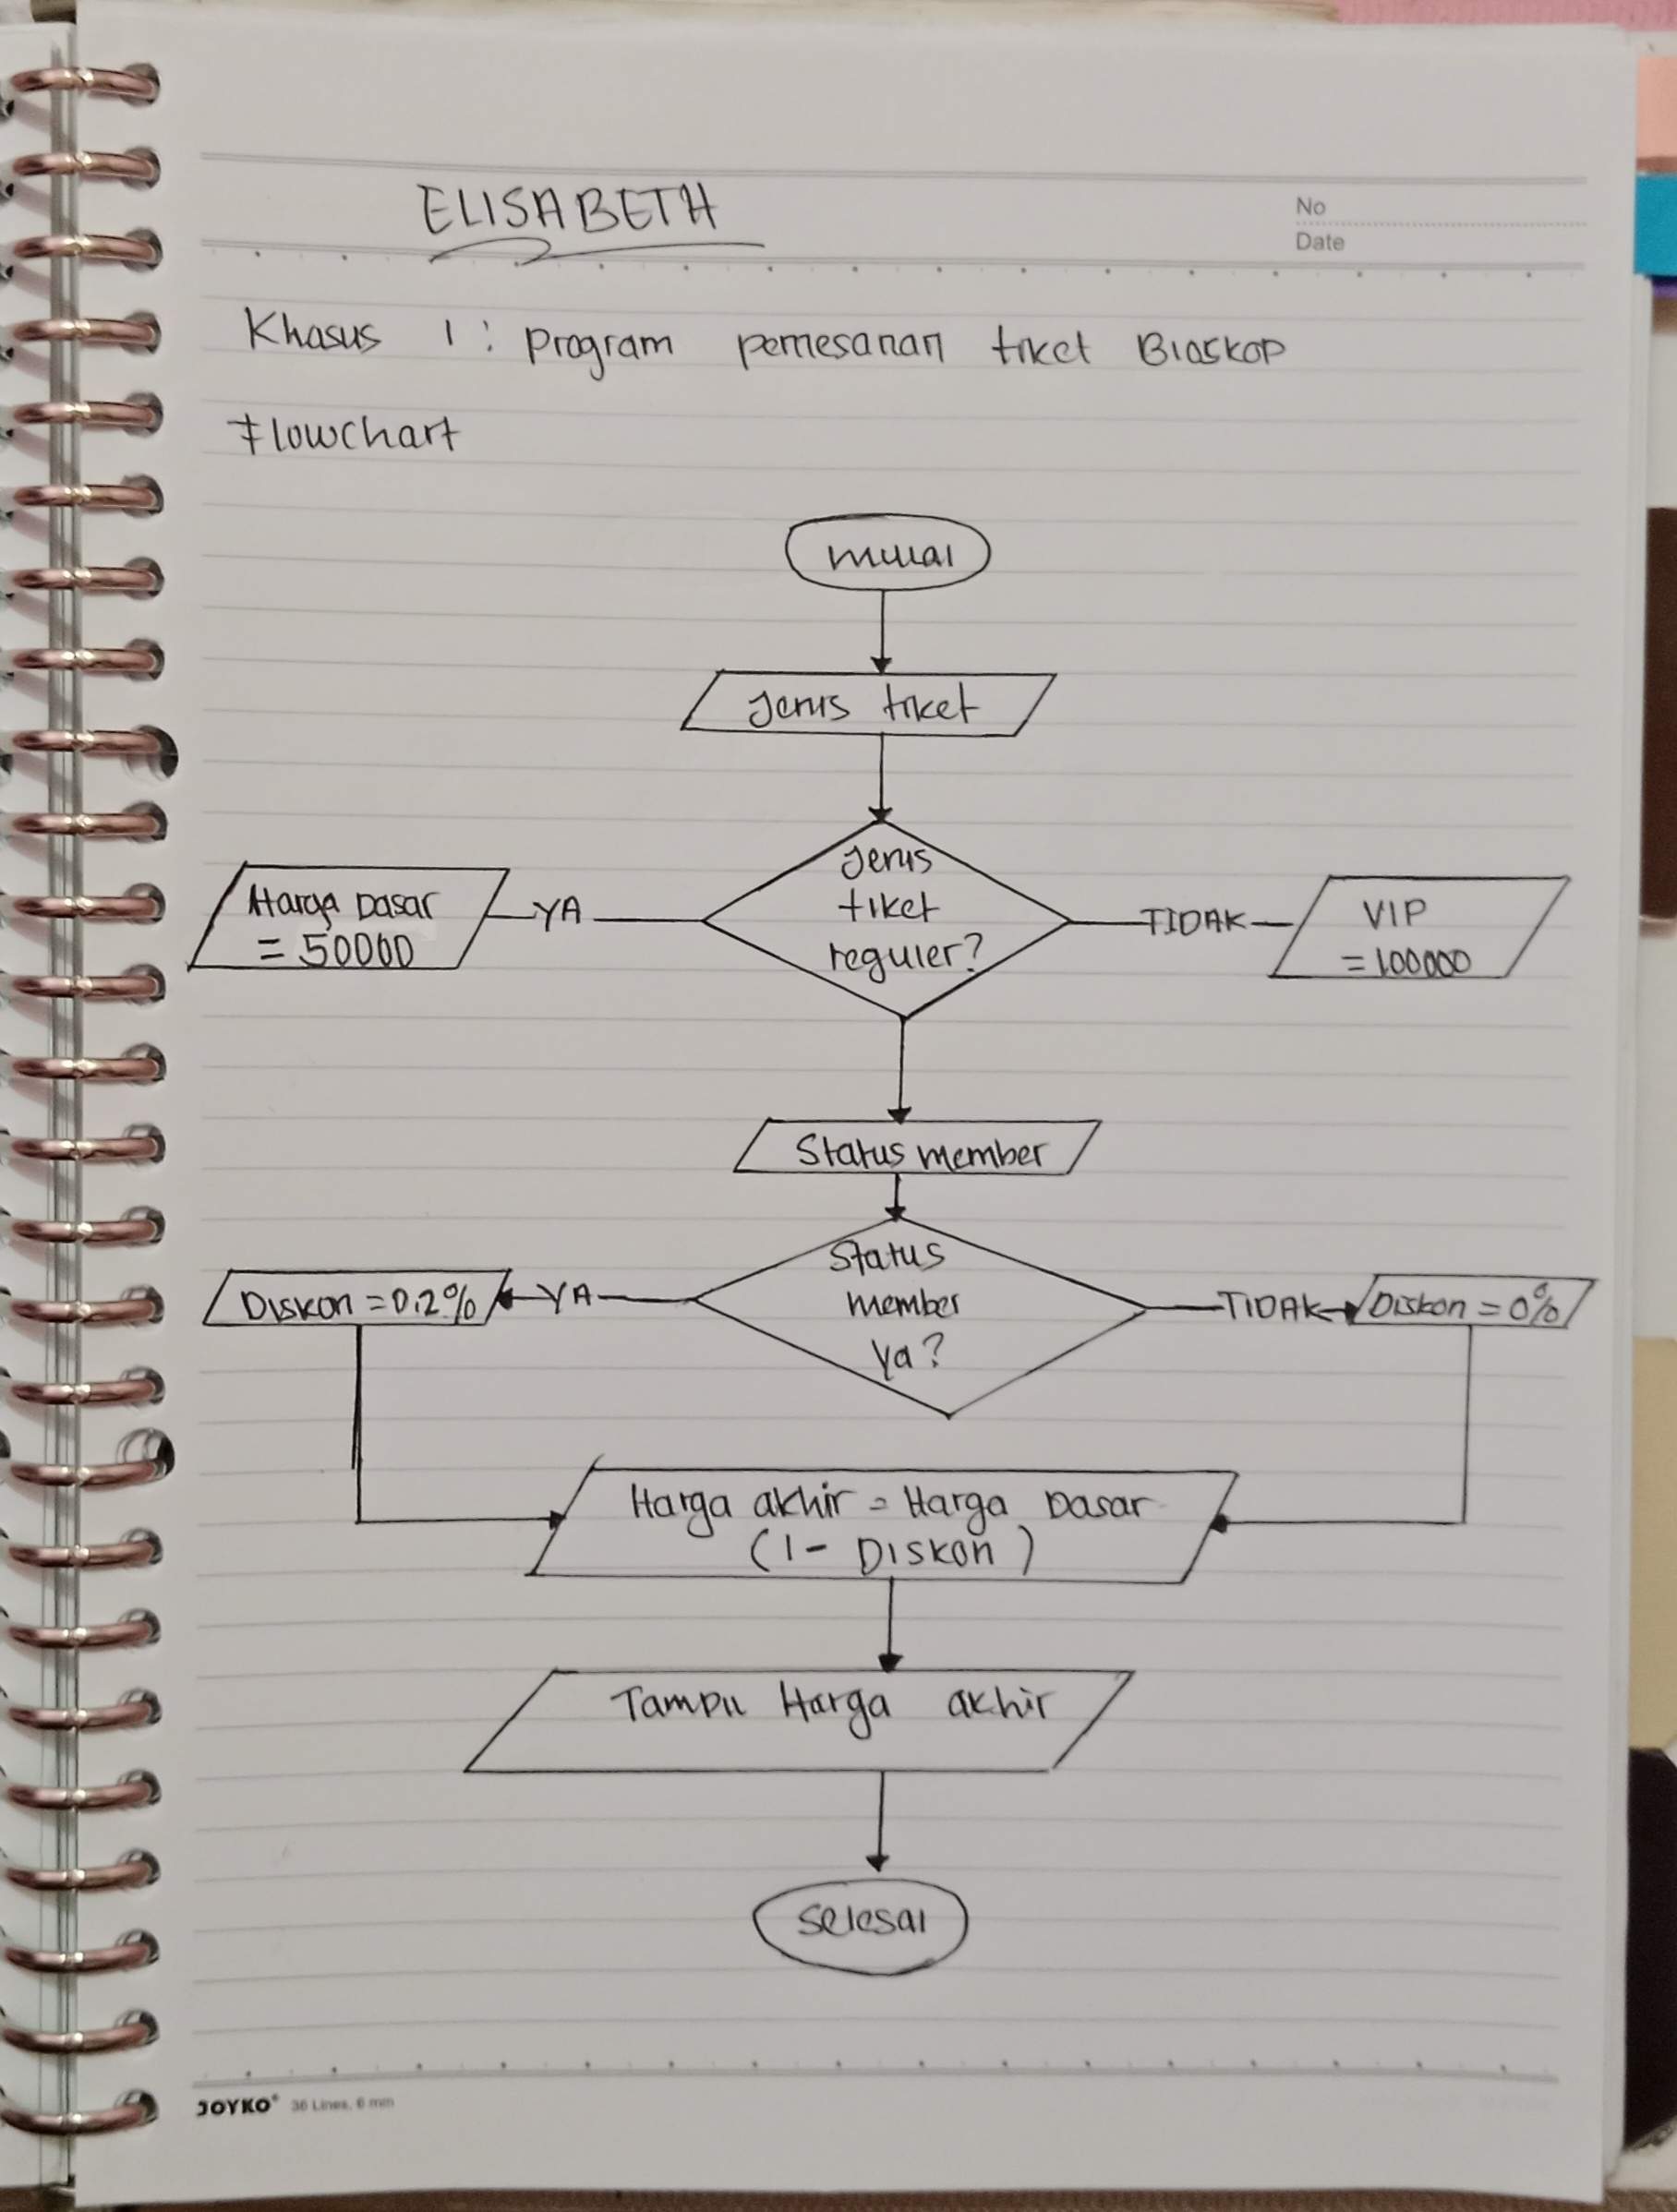 ELISABETH
No
Date
Khasus 1 : program pemesanan tiket Bioskop
Flowchart
mulai
Jenis tiket
Jenis
tiket
reguler?
YA
Harga Dasar
= 50000
TIDAK
VIP
= 100000
Status member
Status
member
ya?
YA
Diskon = 0,2%
TIDAK
Diskon = 0%
Harga akhir = Harga Dasar
(1 - Diskon )
Tampil Harga akhir
selesai
JOYKO 36 Lines, 6 mm